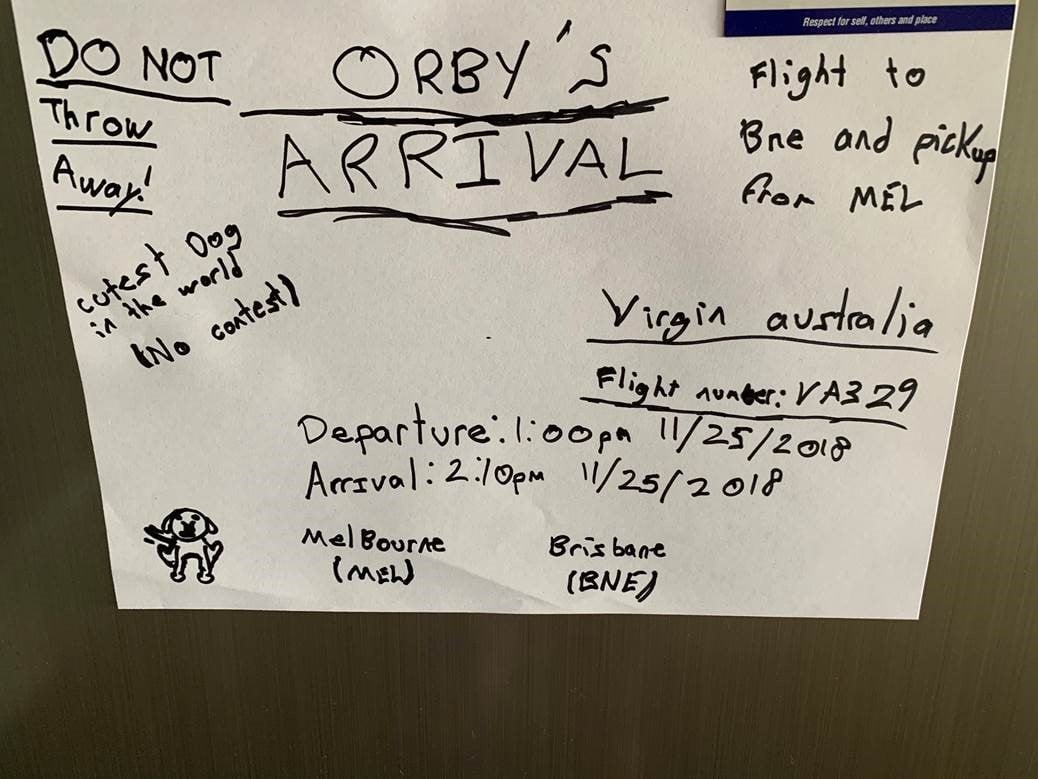 Respect for self, others and place
DO NOT
Throw
Away!
ORBY'S
ARRIVAL
Flight to
Bne and pickup
from MEL
cutest Dog
in the world
(No contest)
Virgin australia
Flight number: VA329
Departure: 1:00pm 11/25/2018
Arrival: 2:10pm 11/25/2018
MelBourne
(MEL)
Brisbane
(BNE)